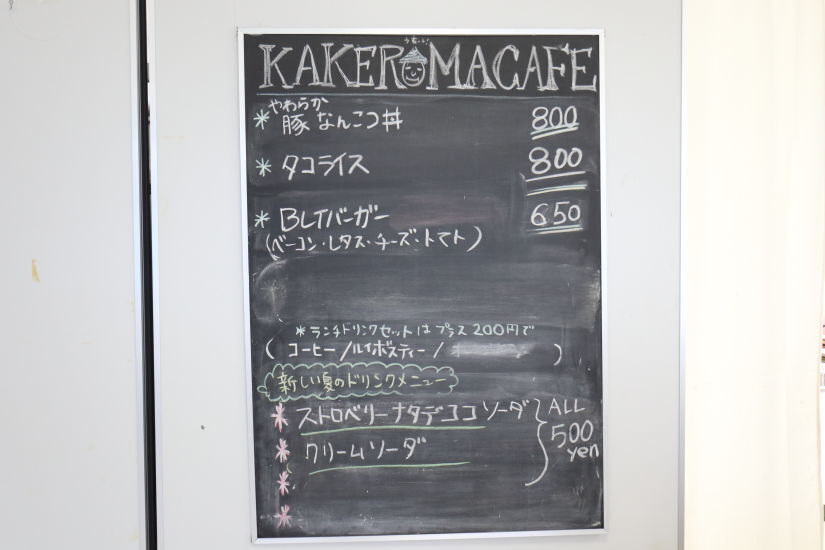 KAKEROMACAFE
やわらか
* 豚なんこつ丼 800
* タコライス 800
* BLTバーガー 650
(ベーコン・レタス・チーズ・トマト)
* ランチドリンクセットは プラス 200円で
( コーヒー/ルイボスティー/ )
新しい夏のドリンクメニュー
* ストロベリーナタデココソーダ } ALL
500
yen
* クリームソーダ
*
*